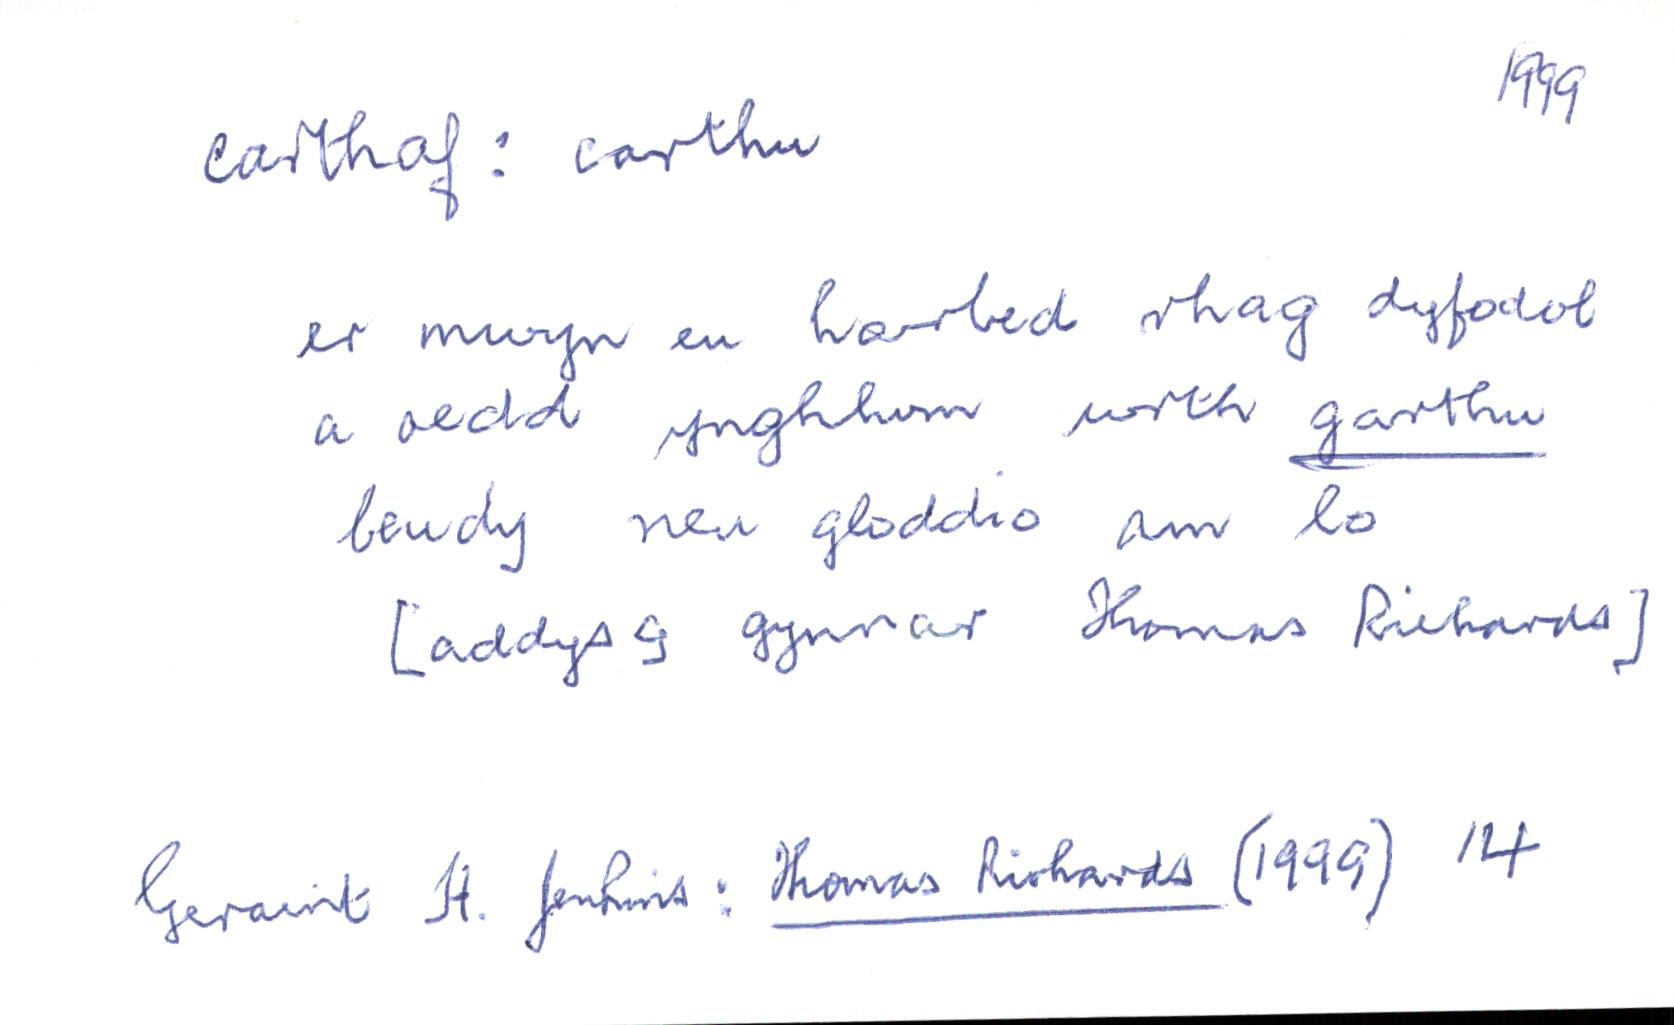 1999
carthaf: carthu
er mwyn eu harbed rhag dyfodol
a oedd ynghlwm wrth garthu
beudy neu gloddio am lo
[addysg gynnar Thomas Richards]
Geraint H. Jenkins: Thomas Richards (1999) 14